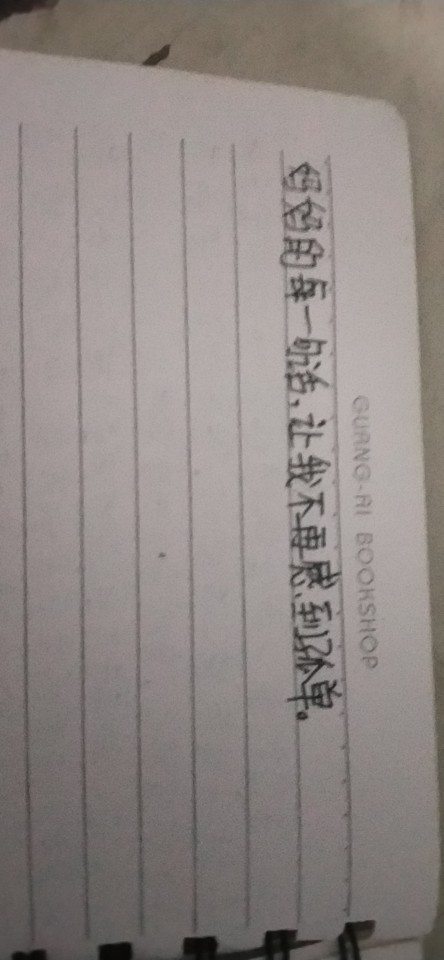 GUANG-AI BOOKSHOP
妈妈的每一句话，让我不再感到孤单。